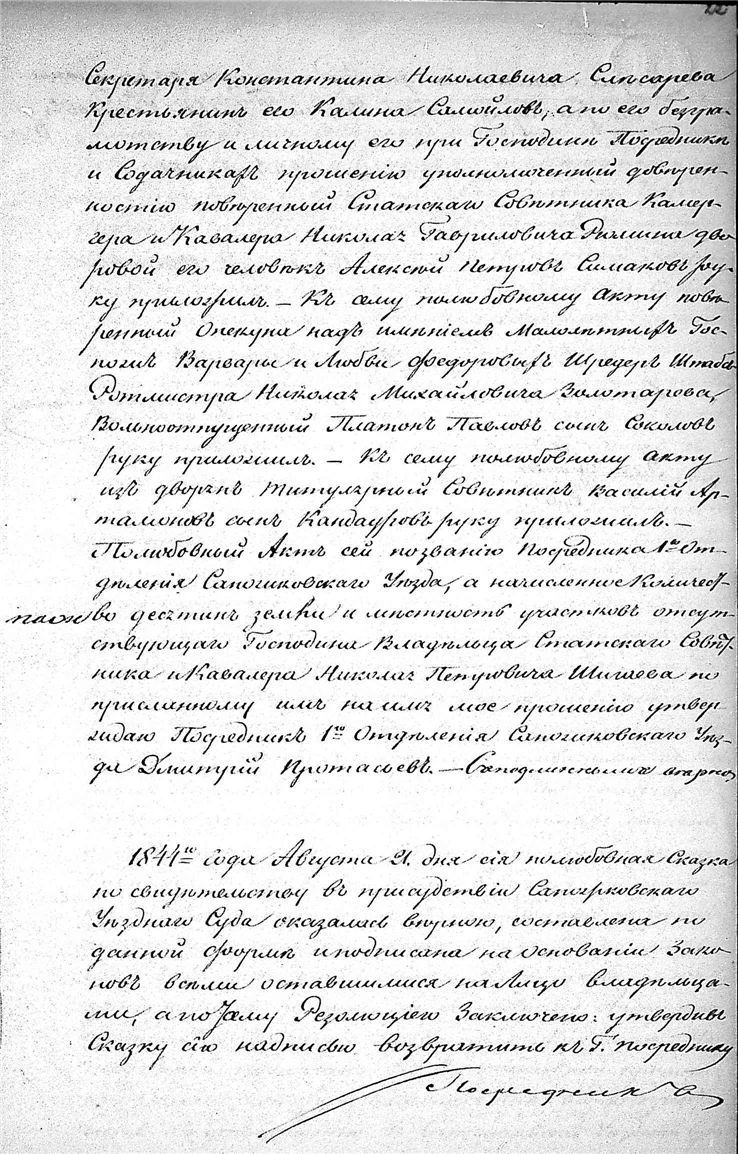 22
Секретаря Константина Николаевича Слѣсарева
Крестьянинъ его Калина Самойловъ, а по его безгра-
мотству и личному его при Господинѣ Посредникѣ
и Содачникахъ прошенію уполномоченный довѣрен-
ностію повѣренный Статскаго Совѣтника Камер-
гера и Кавалера Николая Гавриловича Рюмина дво-
ровой его человѣкъ Алексѣй Петровъ Симаковъ ру-
ку приложилъ. — Къ сему полюбовному акту повѣ-
ренный Опекуна надъ имѣніемъ Малолѣтныхъ Гос-
пожъ Варвары и Любви Федоровыхъ Шредеръ Штабсъ
Ротмистра Николая Михайловича Золотарева,
Вольноотпущенный Платонъ Павловъ сынъ Соколовъ
руку приложилъ. — Къ сему полюбовному акту
изъ дворянъ Титулярный Совѣтникъ Василій Ар-
тамоновъ сынъ Кандауровъ руку приложилъ. —
Полюбовный Актъ сей по званію Посредника 1го От-
дѣленія Сапожковскаго Уѣзда, а начисленное Количест-
во десятинъ земли и мѣстность участковъ отсут-
ствующаго Господина Владѣльца Статскаго Совѣт-
ника и Кавалера Николая Петровича Шишева по
присланному имъ на имя мое прошенію утвер-
ждаю Посредникъ 1го Отдѣленія Сапожковскаго Уѣз-
да Дмитрій Протасьевъ. — Съ подлиннымъ вѣрно
1844го Года Августа 21. дня сія полюбовная Сказка
по свидѣтельству въ присудствіи Сапожковскаго
Уѣзднаго Суда оказалась вѣрною, составлена по
данной формѣ и подписана на основаніи Зако-
новъ всѣми оставшимися на лицо владѣльца-
ми, а по тому Резолюціею Заключено: утвердивъ
Сказку сію надписью возвратить къ Г. Посреднику
Посредникъ